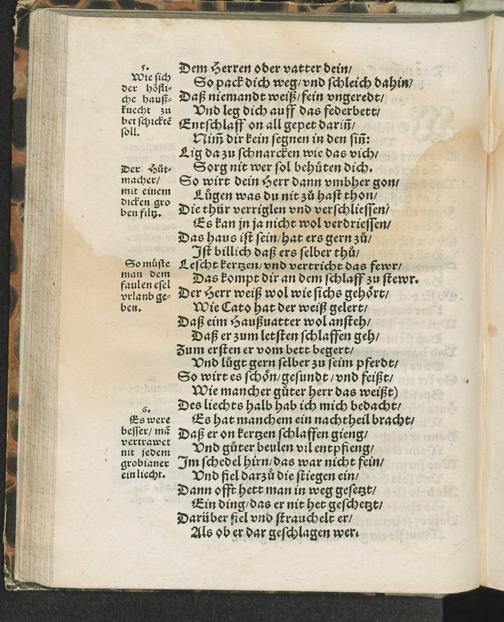 5.
Wie sich
der höfli-
che hauß-
knecht zu
bet schickē
soll.
Dem Herren oder vatter dein/
So pack dich weg/ vnd schleich dahin/
Daß niemandt weiß/ fein vngeredt/
Vnd leg dich auff das federbett/
Entschlaff on all gepet darin̄/
Nim̄ dir kein segnen in den sin̄:
Lig da zů schnarcken wie das vich/
Sorg nit wer sol behüten dich.
Der Hüt-
macher/
mit einem
dicken gro
ben filtz.
So wirt dein Herr dann vmbher gon/
Lůgen was du nit zů hast thon/
Die thür verriglen vnd verschliessen/
Es kan in ja nicht wol verdriessen/
Das haus ist sein/ hat ers gern zů/
Ist billich daß ers selber thů/
So müste
man dem
faulen esel
vrlanb ge-
ben.
Lescht kertzen/ vnd vertricht das fewr/
Das kompt dir an dem schlaff zu stewr.
Der Herr weiß wol wie sichs gehört/
Wie Cato hat der weiß gelert/
Daß ein Haußuatter wol ansteh/
Daß er zum letsten schlaffen geh/
Zum ersten er vom bett begert/
Vnd lůgt gern selber zu seim pferdt/
So wirt es schön/ gesundt/ vnd feißt/
Wie mancher gůter herr das weißt)
6.
Es were
besser/ mā
vertrawet
nit jedem
grobianer
ein liecht.
Des liechts halb hab ich mich bedacht/
Es hat manchem ein nachtheil bracht/
Daß er on kertzen schlaffen gieng/
Vnd gůter beulen vil entpfieng/
Im schedel hirn/ das war nicht fein/
Vnd fiel darzů die stiegen ein/
Dann offt hett man in weg gesetzt/
Ein ding/ das er nit het geschetzt/
Darüber fiel vnd strauchelt er/
Als ob er dar geschlagen wer.